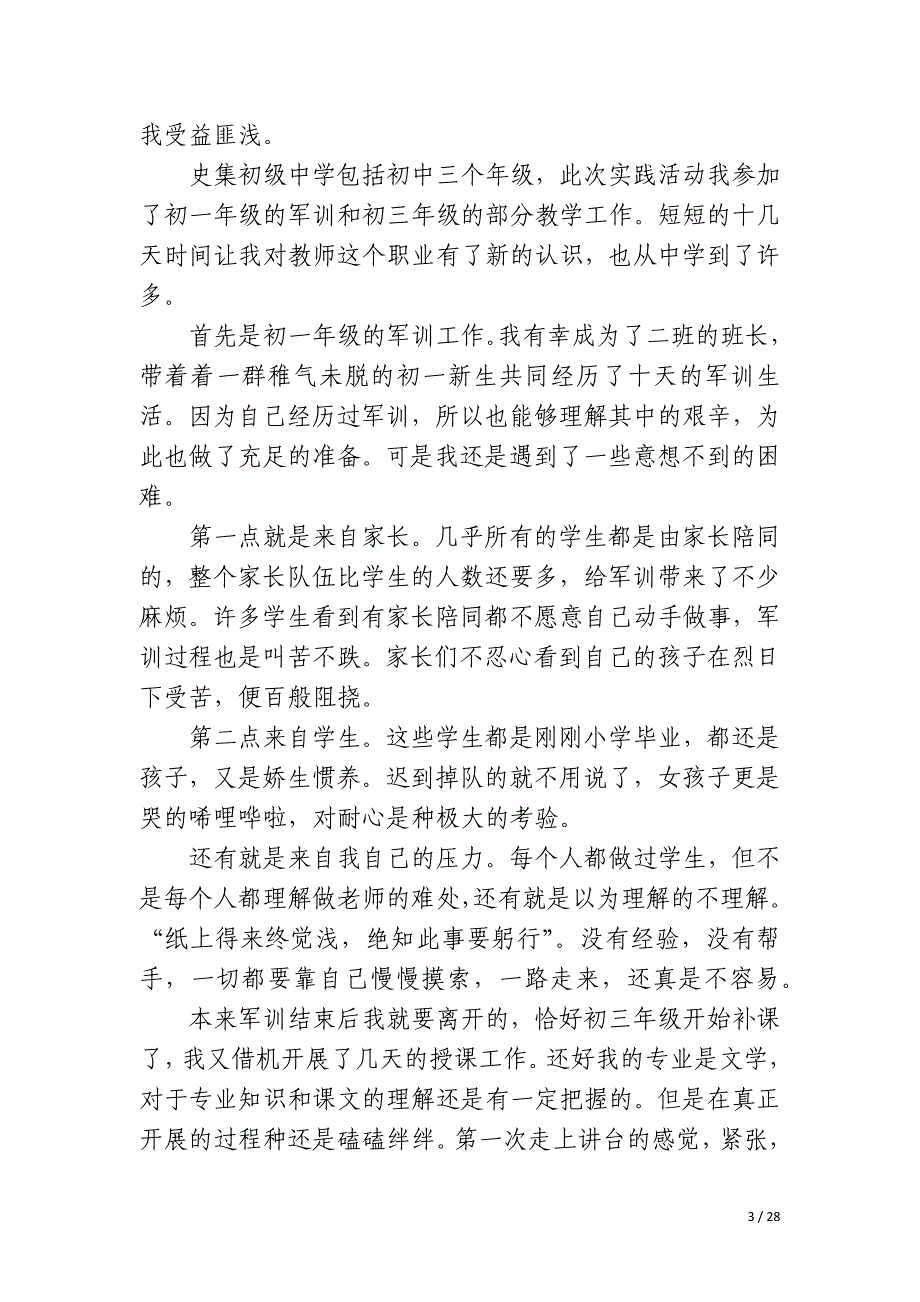 我受益匪浅。
史集初级中学包括初中三个年级，此次实践活动我参加
了初一年级的军训和初三年级的部分教学工作。短短的十几
天时间让我对教师这个职业有了新的认识，也从中学到了许
多。
首先是初一年级的军训工作。我有幸成为了二班的班长，
带着着一群稚气未脱的初一新生共同经历了十天的军训生
活。因为自己经历过军训，所以也能够理解其中的艰辛，为
此也做了充足的准备。可是我还是遇到了一些意想不到的困
难。
第一点就是来自家长。几乎所有的学生都是由家长陪同
的，整个家长队伍比学生的人数还要多，给军训带来了不少
麻烦。许多学生看到有家长陪同都不愿意自己动手做事，军
训过程也是叫苦不跌。家长们不忍心看到自己的孩子在烈日
下受苦，便百般阻挠。
第二点来自学生。这些学生都是刚刚小学毕业，都还是
孩子，又是娇生惯养。迟到掉队的就不用说了，女孩子更是
哭的唏哩哗啦，对耐心是种极大的考验。
还有就是来自我自己的压力。每个人都做过学生，但不
是每个人都理解做老师的难处，还有就是以为理解的不理解。
“纸上得来终觉浅，绝知此事要躬行”。没有经验，没有帮
手，一切都要靠自己慢慢摸索，一路走来，还真是不容易。
本来军训结束后我就要离开的，恰好初三年级开始补课
了，我又借机开展了几天的授课工作。还好我的专业是文学，
对于专业知识和课文的理解还是有一定把握的。但是在真正
开展的过程种还是磕磕绊绊。第一次走上讲台的感觉，紧张，
3 / 28